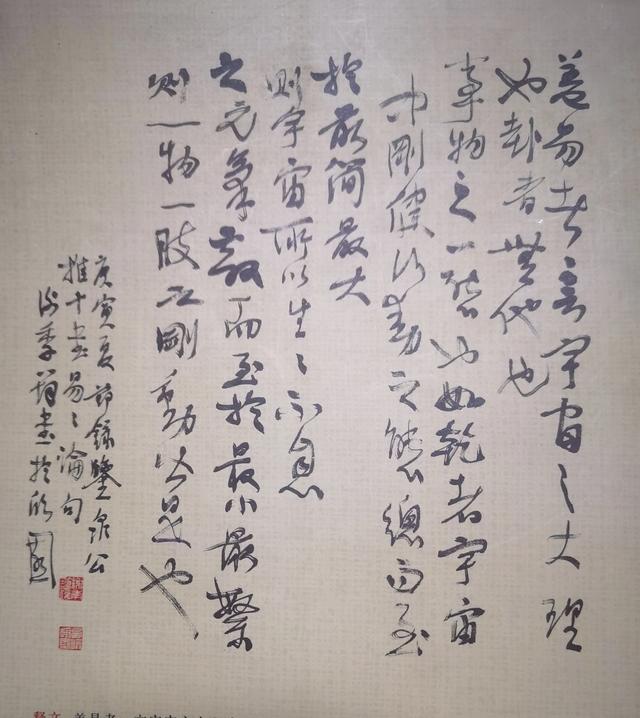 盖易者言宇宙之大理
也卦者無他也
事物之一態也如乾者宇宙
中剛健行動之態總而至
於最簡最大
則宇宙所以生〻不息
之元氣散而至於最小最繁
则一物一肢之剛動皆是也
庚寅夏節録鑒泉公
推十書易〻論句
谢季筠書於園
释文